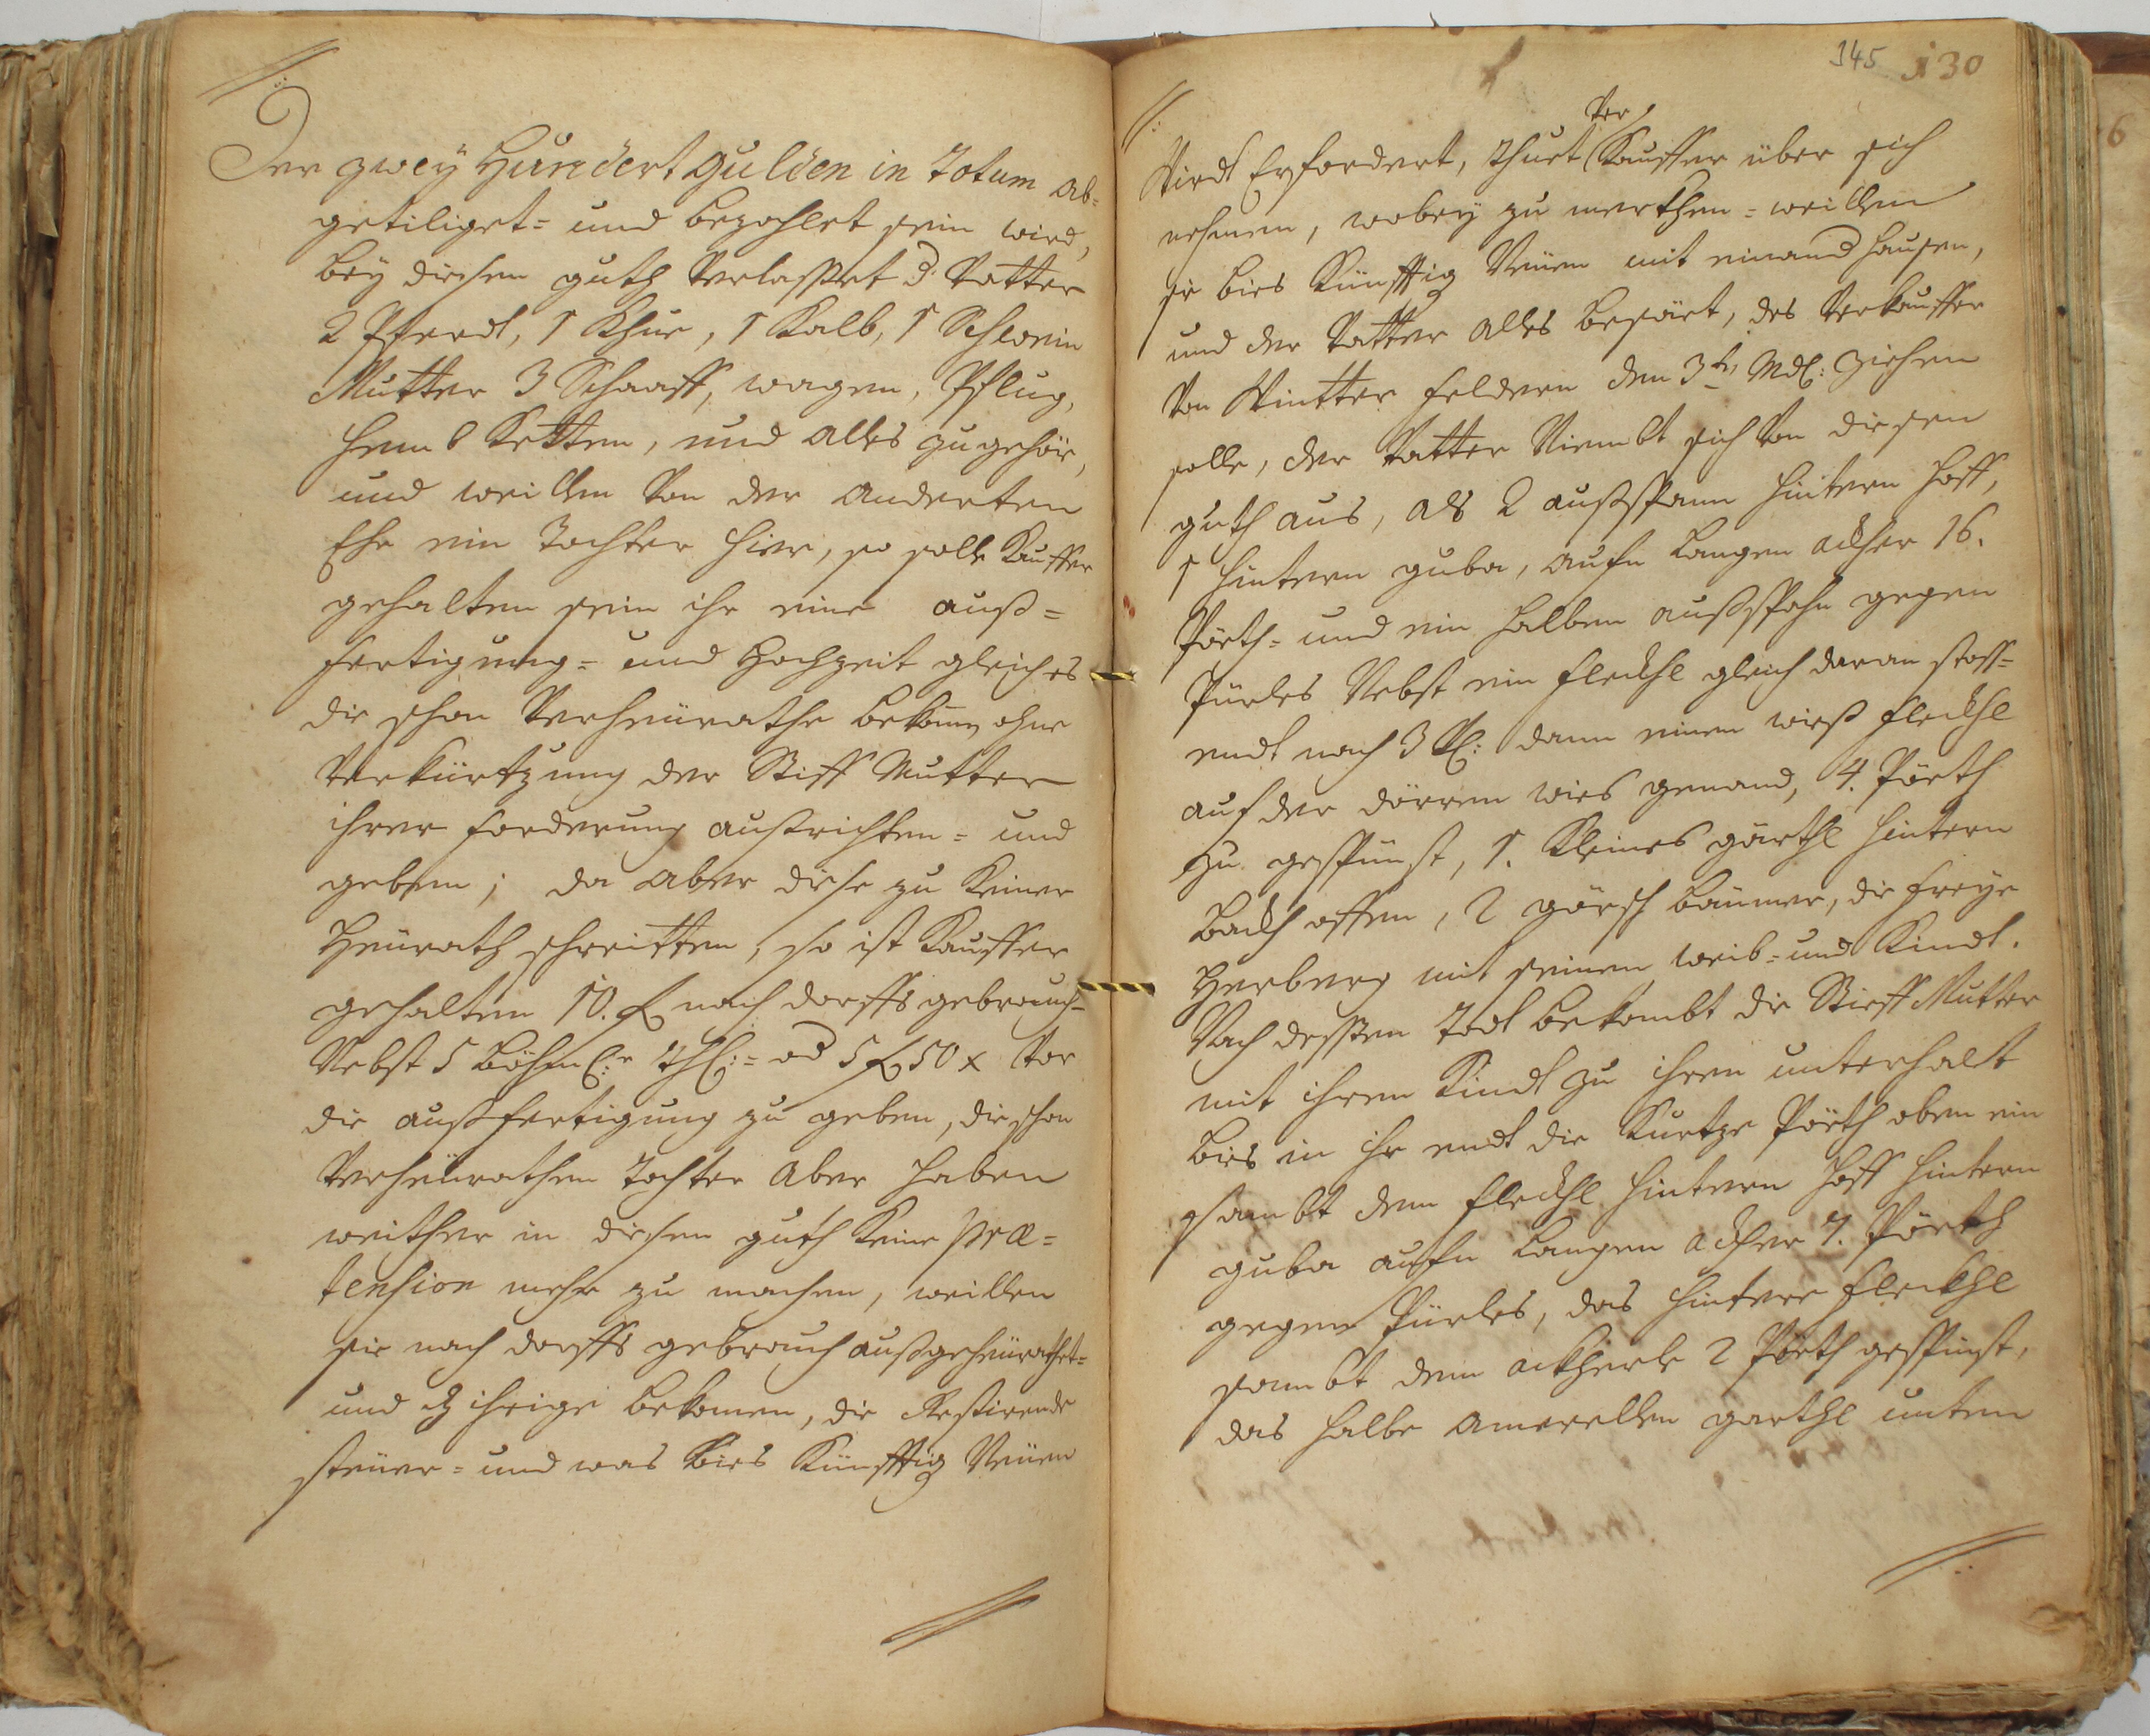 Der zweÿ Hundert gulden in Totum ab=
getiliget= und bezahlet sein wird,
beÿ diesen guth Verlasset d. Vatter
2 Pferdt, 1 Khue, 1 Kalb, 1 Schwein
Mutter 3 Schaaff, wagen, Pflug,
Hemb Ketten, und alles zugehör,
und weillen Von der anderten
Ehe ein Tochter hier, so solle Kauffer
gehalten sein ihr eine auß=
fertigung= und Hochzeit gleich es
die schon Verheürathe bekomen ohne
Verkürtzung der Stiff Mutter
ihrer forderung außrichten= und
geben; da aber diese zu keiner
Heürath schreitten, so ist Kauffer
gehalten 10. f nach dorffs gebrauch=
Nebst 5 Böhml: Thl:= od 5 f 50 x Vor
die außfertigung zu geben, die schon
Verheürathen Tochter aber haben
weither in diesen guth keine præ=
tension mehr zu machen, weillen
sie nach dorffs gebrauch außgeheürathet=
und dz ihrige bekomen, die Restirende
steüer= und was bies Künfftig Neüen
145 130
Wirdt Erfordert, thuet Ver Kauffer über sich
nehmen, wobeÿ zu merkhen= weillen
sie bies Künfftig Neüen mit einand hausen,
und der Vatter alles besäet, das Verkauffer
Von Wintter feldern den 3t. Mdl: ziehen
solle, der Vatter Niembt sich Von diesen
guth aus, als 2 außspann hintern Hoff,
1 hintern guba, aufn Langen ackher 16.
Pöeth= und ein halben außspahn gegen
Pürles Nebst ein fleckhl gleich daran stoss=
endt nach 3 Vl: dann einen wieß fleckhl
auf der dörren wies genand, 4. Pöeth
zu gespünst, 1. Kleines gärthl hintern
Backh offen, 2 görsch baümer, die freÿe
Herberg mit seinem weib= und Kindt.
Nach dessen Todt bekombt die Stieff Mutter
mit ihrem Kindt zu ihren unterhalt
bies in ihr endt die Kurtze Pöeth oben ein
sambt dem fleckhl hintern Hoff hintern
guba aufn Langen ackher 7. Pöeth
gegen Pürles, das hintere fleckhl
sambt dem ackherle 2 Pöeth gespünst,
das halbe amerellen garthl unten